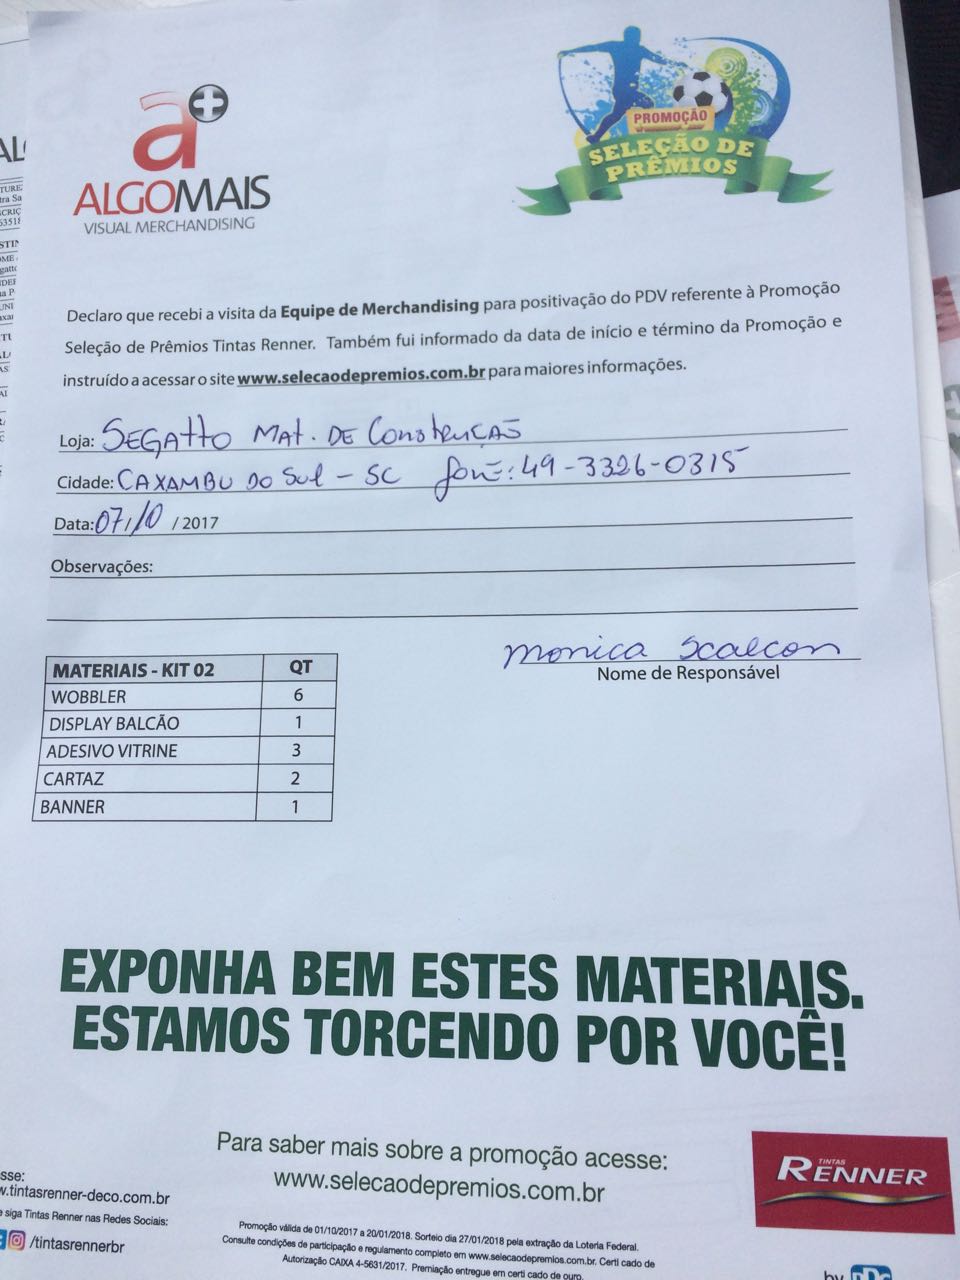 a+
ALGOMAIS
VISUAL MERCHANDISING
PROMOÇÃO
SELEÇÃO DE
PRÊMIOS
Declaro que recebi a visita da Equipe de Merchandising para positivação do PDV referente à Promoção
Seleção de Prêmios Tintas Renner. Também fui informado da data de início e término da Promoção e
instruído a acessar o site www.selecaodepremios.com.br para maiores informações.
Loja: SEGATTO MAT. DE CONSTRUÇÃO
Cidade: CAXAMBU DO SUL - SC fone: 49-3326-0315
Data: 07/10 / 2017
Observações:
monica scalcon
Nome de Responsável
MATERIAIS - KIT 02 QT
WOBBLER 6
DISPLAY BALCÃO 1
ADESIVO VITRINE 3
CARTAZ 2
BANNER 1
EXPONHA BEM ESTES MATERIAIS.
ESTAMOS TORCENDO POR VOCÊ!
Para saber mais sobre a promoção acesse:
www.selecaodepremios.com.br
sse:
w.tintasrenner-deco.com.br
e siga Tintas Renner nas Redes Sociais:
/tintasrennerbr
Promoção válida de 01/10/2017 a 20/01/2018. Sorteio dia 27/01/2018 pela extração da Loteria Federal.
Consulte condições de participação e regulamento completo em www.selecaodepremios.com.br. Certi cado de
Autorização CAIXA 4-5631/2017. Premiação entregue em certi cado de ouro.
TINTAS
RENNER
by PPG